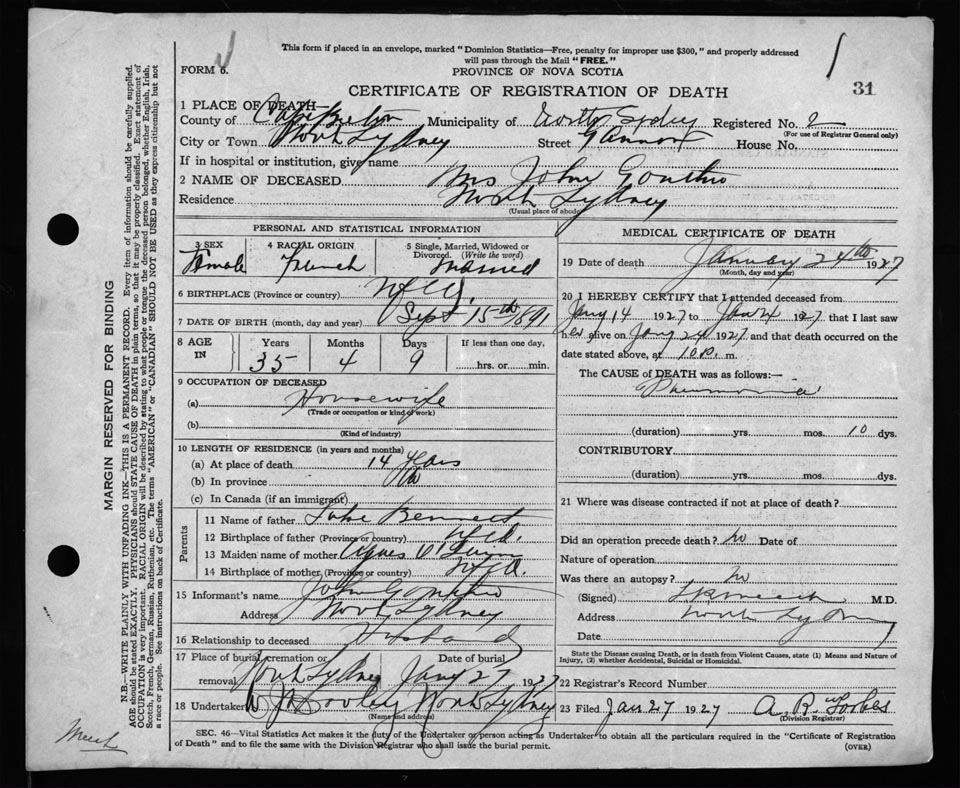 This form if placed in an envelope, marked "Dominion Statistics—Free, penalty for improper use $300," and properly addressed
will pass through the Mail "FREE."
FORM 6.
PROVINCE OF NOVA SCOTIA
CERTIFICATE OF REGISTRATION OF DEATH
31
1 PLACE OF DEATH—
County of Cape Breton Municipality of North Sydney Registered No. 2
(For use of Registrar General only)
City or Town North Sydney Street Gannon House No.
If in hospital or institution, give name
2 NAME OF DECEASED Mrs John Gouthro
Residence North Sydney
(Usual place of abode)
PERSONAL AND STATISTICAL INFORMATION
3 SEX 4 RACIAL ORIGIN 5 Single, Married, Widowed or Divorced. (Write the word)
Female French Married
6 BIRTHPLACE (Province or country) Nfld.
7 DATE OF BIRTH (month, day and year) Sept 15th 1891
8 AGE IN Years Months Days If less than one day,
35 4 9 hrs. or min.
9 OCCUPATION OF DECEASED
(a) Housewife
(Trade or occupation or kind of work)
(b)
(Kind of industry)
10 LENGTH OF RESIDENCE (in years and months)
(a) At place of death 14 years
(b) In province
(c) In Canada (if an immigrant)
Parents
11 Name of father Bennett
12 Birthplace of father (Province or country) Nfld.
13 Maiden name of mother Agnes
14 Birthplace of mother (Province or country) Nfld.
15 Informant's name John Gouthro
Address North Sydney
16 Relationship to deceased Husband
17 Place of burial, cremation or removal North Sydney Date of burial Jany 27 1927
18 Undertaker Dooley North Sydney
(Name and address)
MEDICAL CERTIFICATE OF DEATH
19 Date of death January 24th 1927
(Month, day and year)
20 I HEREBY CERTIFY that I attended deceased from
Jany 14 1927 to Jan 24 1927 that I last saw
her alive on Jany 24 1927 and that death occurred on the
date stated above, at 10 P. m.
The CAUSE of DEATH was as follows:—
Pneumonia
(duration) yrs. mos. 10 dys.
CONTRIBUTORY
(duration) yrs. mos. dys.
21 Where was disease contracted if not at place of death?
Did an operation precede death? No Date of
Nature of operation
Was there an autopsy? No
(Signed) Meech M.D.
Address North Sydney
Date
State the Disease causing Death, or in death from Violent Causes, state (1) Means and Nature of
Injury, (2) whether Accidental, Suicidal or Homicidal.
22 Registrar's Record Number
23 Filed Jan 27 1927 A. R. Forbes
(Division Registrar)
SEC. 46—Vital Statistics Act makes it the duty of the Undertaker or person acting as Undertaker to obtain all the particulars required in the "Certificate of Registration
of Death" and to file the same with the Division Registrar who shall issue the burial permit.
(OVER)
MARGIN RESERVED FOR BINDING
N.B.—WRITE PLAINLY WITH UNFADING INK—THIS IS A PERMANENT RECORD. Every item of information should be carefully supplied.
AGE should be stated EXACTLY. PHYSICIANS should STATE CAUSE OF DEATH in plain terms, so that it may be properly classified. Exact statement of
OCCUPATION is very important. RACIAL ORIGIN will be described by stating to what people or tongue the deceased person belonged, whether English, Irish,
Scotch, French, German, Russian, Ruthenian, etc. The terms "AMERICAN" or "CANADIAN" SHOULD NOT BE USED as they express citizenship but not
a race or people. See instructions on back of Certificate.
Meech